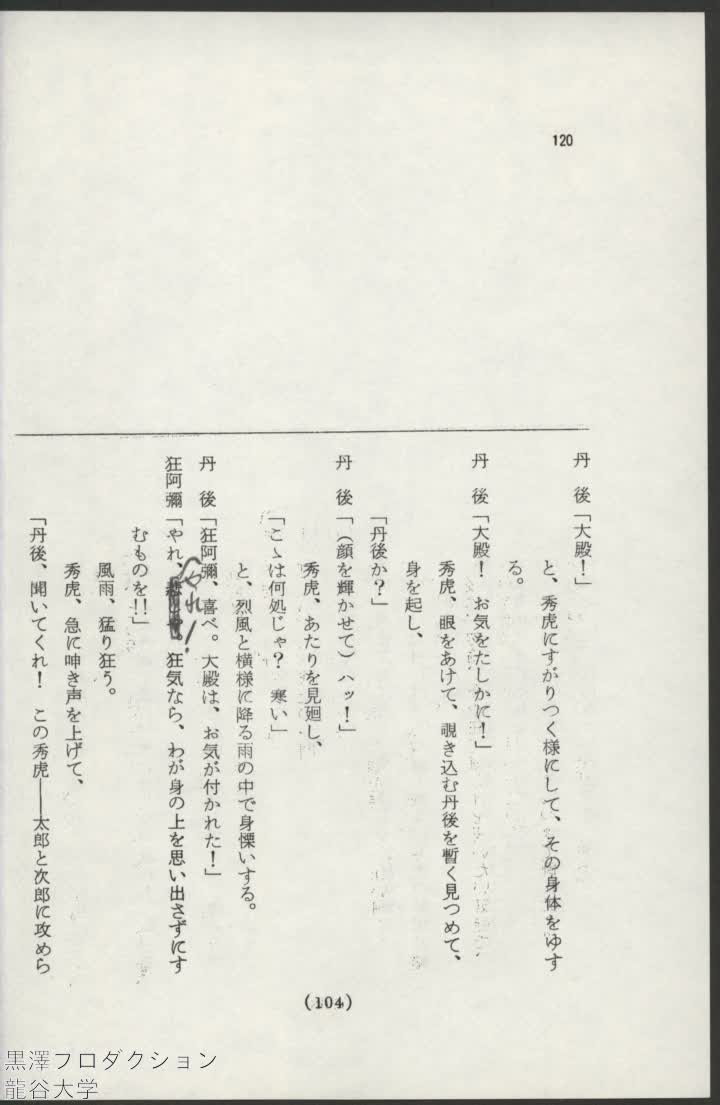 120
丹　後「大殿！」
と、秀虎にすがりつく様にして、その身体をゆす
る。
丹　後「大殿！　お気をたしかに！」
秀虎、眼をあけて、覗き込む丹後を暫く見つめて、
身を起し、
「丹後か？」
丹　後「（顔を輝かせて）ハッ！」
秀虎、あたりを見廻し、
「こゝは何処じゃ？　寒い」
と、烈風と横様に降る雨の中で身慄いする。
丹　後「狂阿彌、喜べ。大殿は、お気が付かれた！」
やれ！
狂阿彌「やれ、悲しや。狂気なら、わが身の上を思い出さずにす
むものを!!」
風雨、猛り狂う。
秀虎、急に呻き声を上げて、
「丹後、聞いてくれ！　この秀虎――太郎と次郎に攻めら
(104)
黒澤フロダクション
龍谷大学